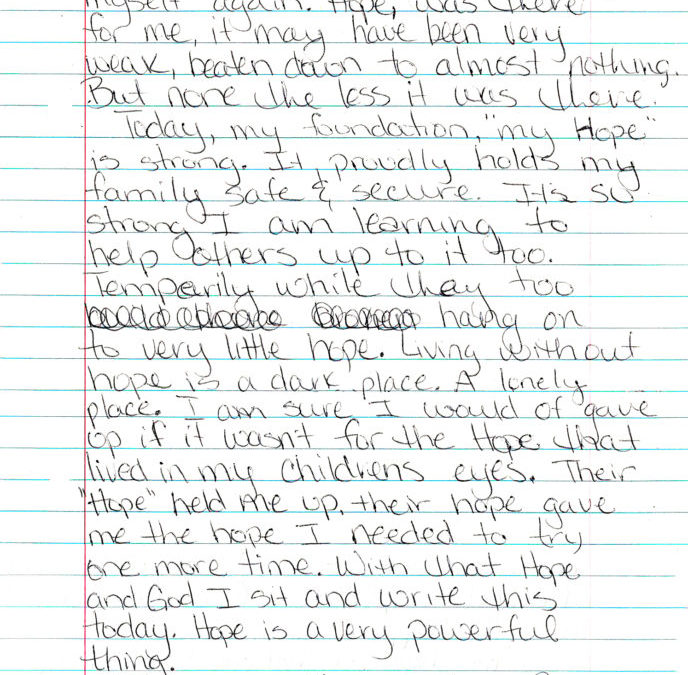 myself again. Hope, was there
for me, it may have been very
weak, beaten down to almost nothing.
But none the less it was there.
Today, my foundation, "my Hope"
is strong. It proudly holds my
family safe & secure. It's so
strong I am learning to
help others up to it too.
Temperily while they too
hang on
to very little hope. Living without
hope is a dark place. A lonely
place. I am sure I would of gave
up if it wasn't for the Hope that
lived in my childrens eyes. Their
"Hope" held me up, their hope gave
me the hope I needed to try
one more time. With that Hope
and God I sit and write this
today. Hope is a very powerful
thing.